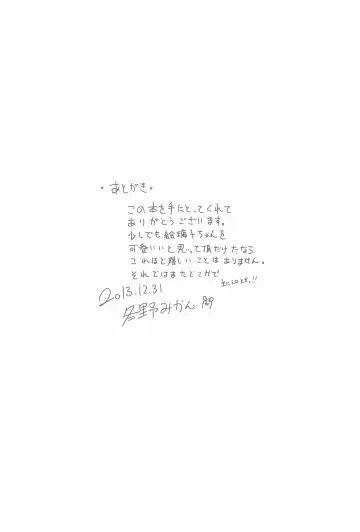 ・あとがき・
この本を手にとってくれて
ありがとうございます。
少しでも絵璃子ちゃんを
可愛いいと思って頂だけたなら
これほど嬉しいことはありません。
それではまたどこかで
2013.12.31
みかん